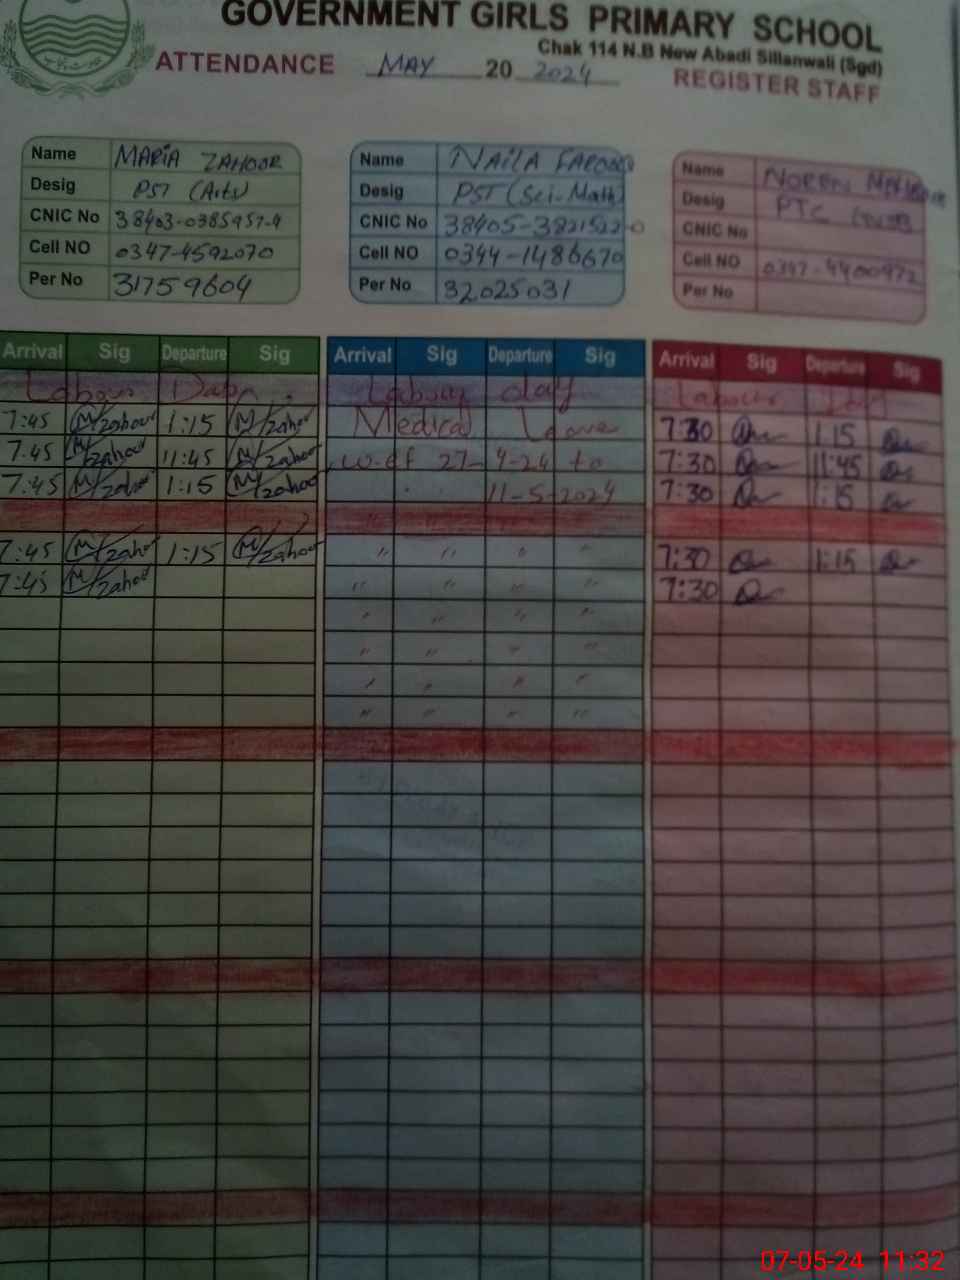 GOVERNMENT GIRLS PRIMARY SCHOOL
Chak 114 N.B New Abadi Sillanwali (Sgd)
ATTENDANCE MAY 20 2024 REGISTER STAFF
Name MARIA ZAHOOR
Desig PST (Arts)
CNIC No 38403-0385957-4
Cell NO 0347-4592070
Per No 31759604
Name NAILA FAROOQ
Desig PST (Sci-Math)
CNIC No 38405-3821522-0
Cell NO 0344-1486670
Per No 32025031
Name NOREEN
Desig PTC
CNIC No
Cell NO 0347-4400972
Per No
Arrival Sig Departure Sig Arrival Sig Departure Sig Arrival Sig Departure Sig
Labour Day Labour day Labour Day
7:45 M/zahoor 1:15 M/zahoor Medical Leave 7:30 1:15
7:45 M/zahoor 11:45 M/zahoor w.ef 27-4-24 to 7:30 11:45
7:45 M/zahoor 1:15 M/zahoor 11-5-2024 7:30 1:15
7:45 M/zahoor 1:15 M/zahoor " " " " 7:30 1:15
7:45 M/zahoor " " " " 7:30
" " " "
" " " "
" " " "
" " " "
07-05-24 11:32